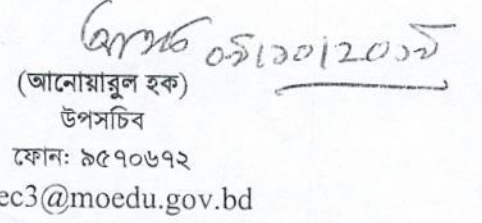 ০৯/১০/২০১৯
(আনোয়ারুল হক)
উপসচিব
ফোনঃ ৯৫৭০৬৭২
ec3@moedu.gov.bd